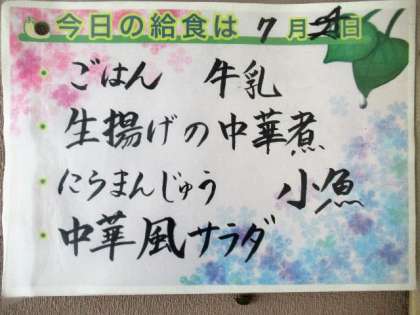 今日の給食は 7月 日
・ごはん 牛乳
・生揚げの中華煮
・にらまんじゅう 小魚
・中華風サラダ